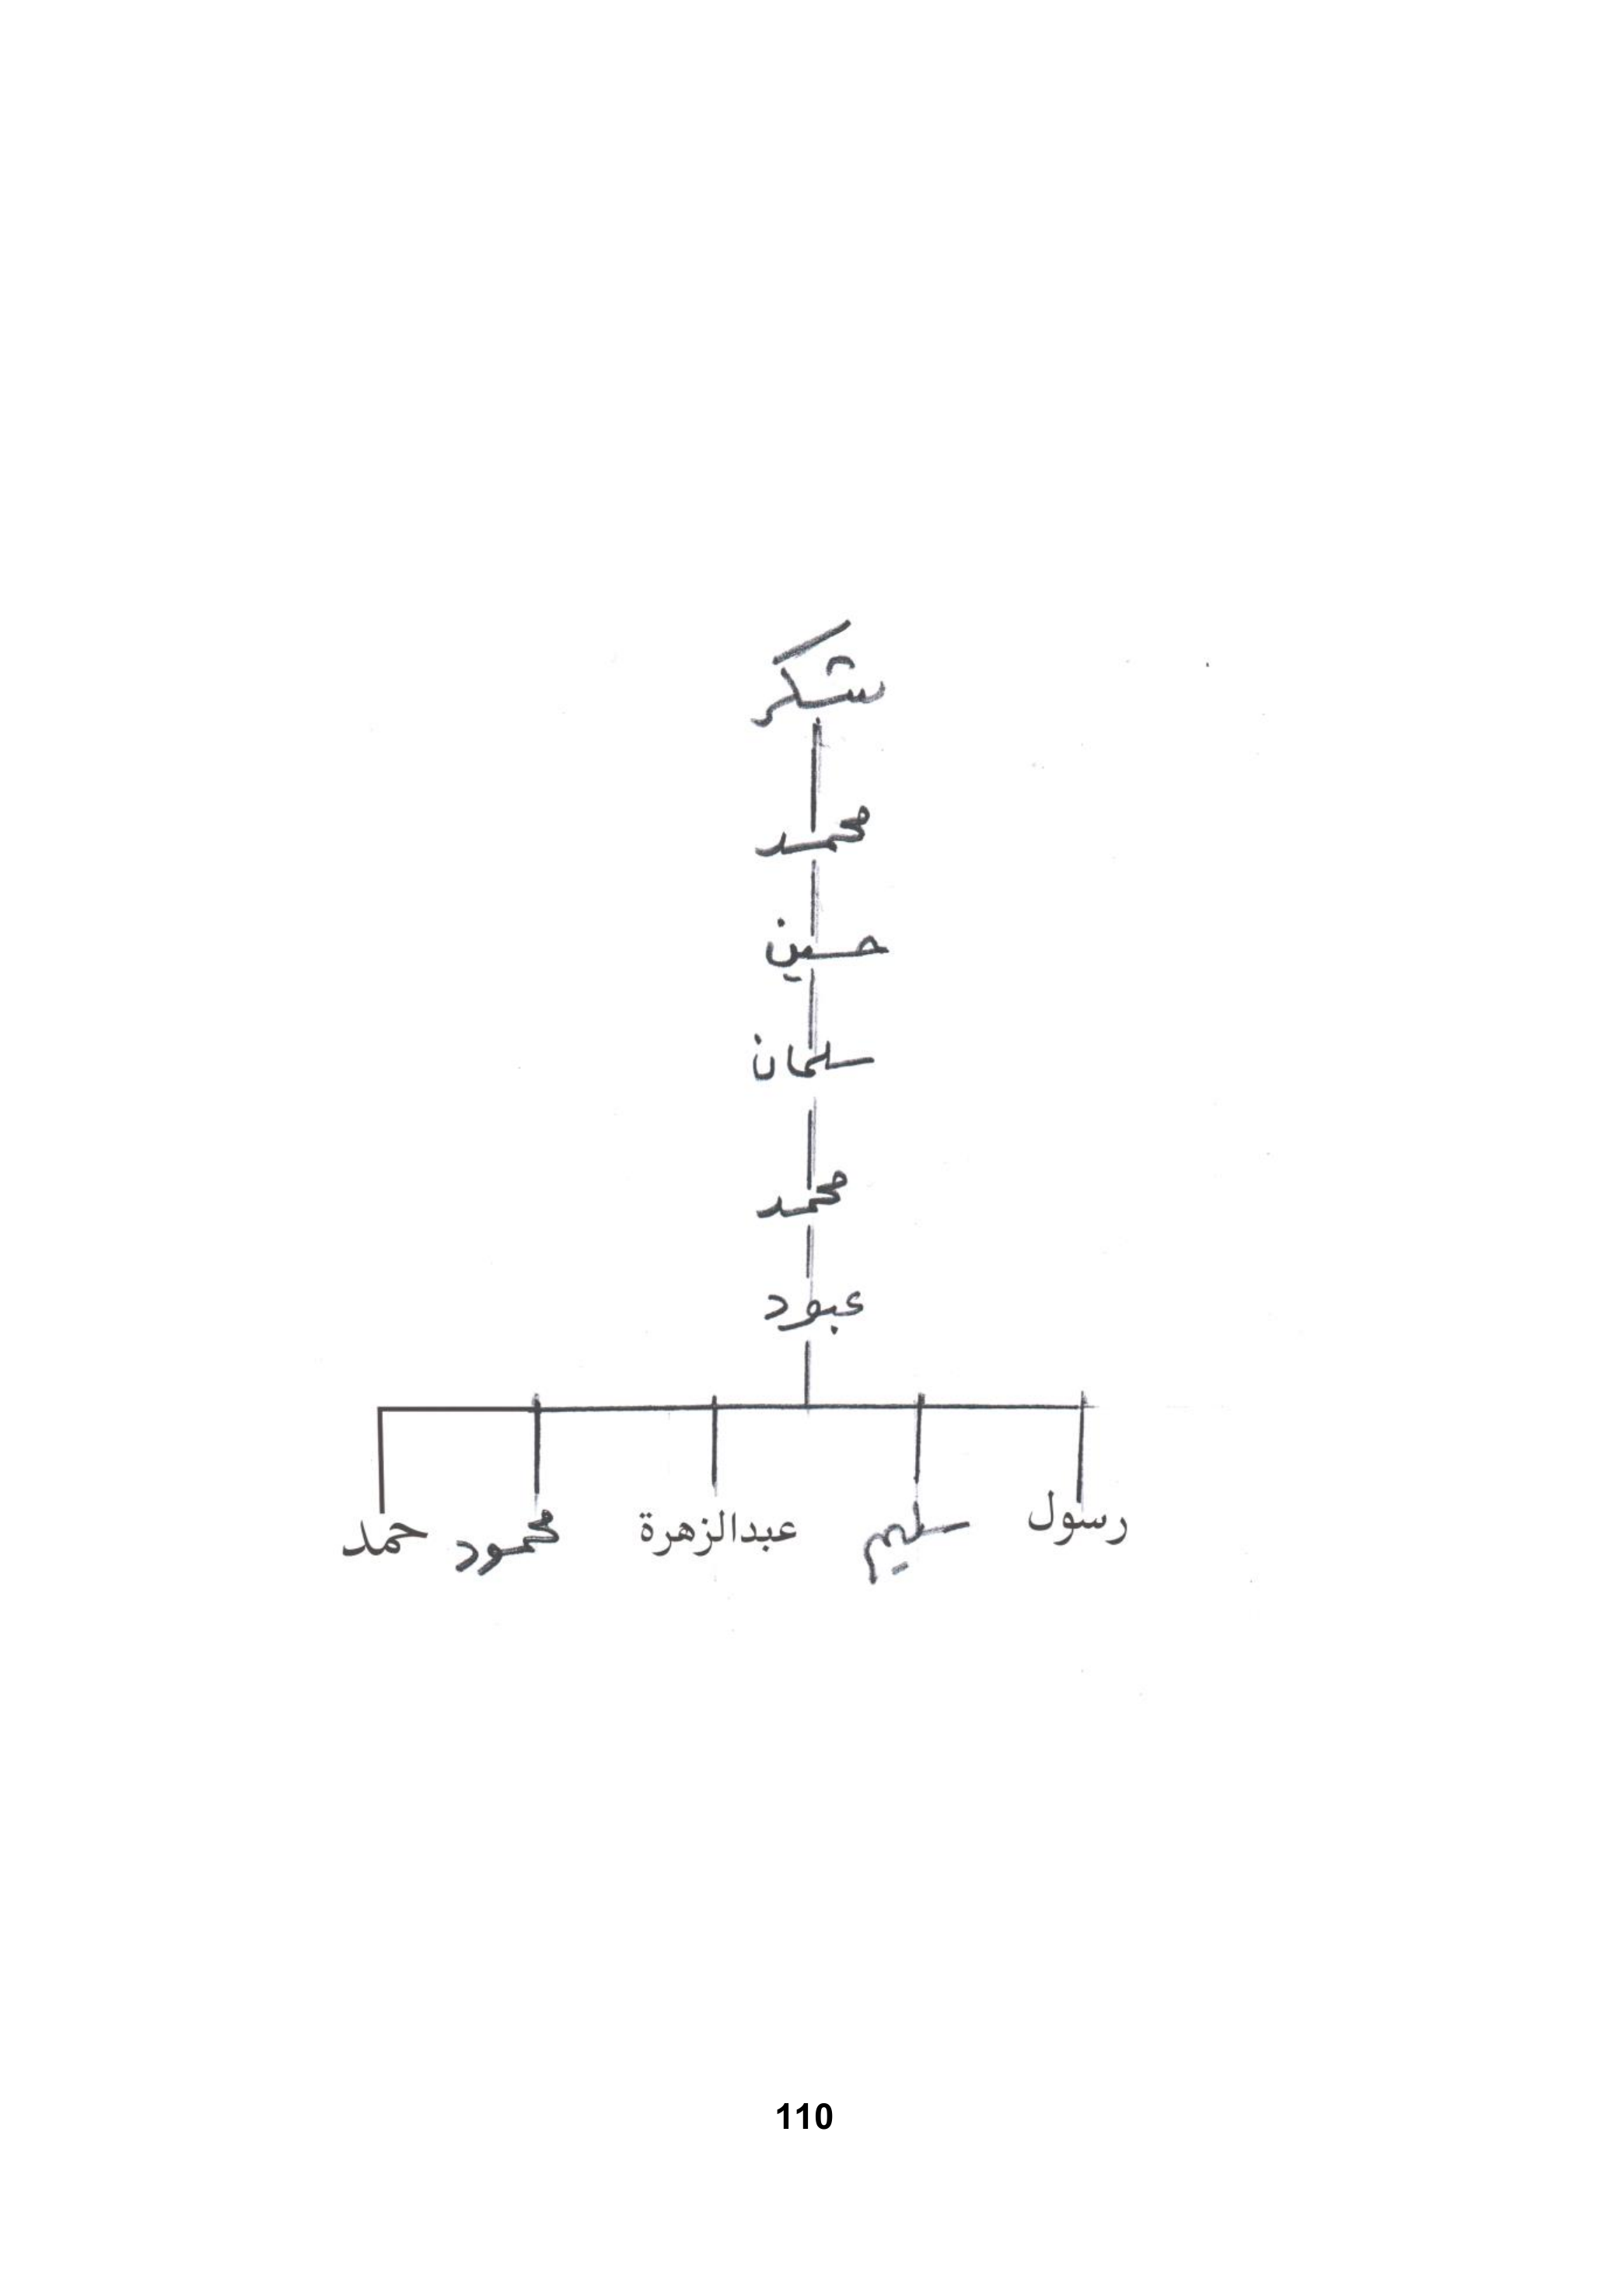 شكر
محمد
حسين
سلمان
محمد
عبود
رسول سليم عبدالزهرة محمود حمد
110